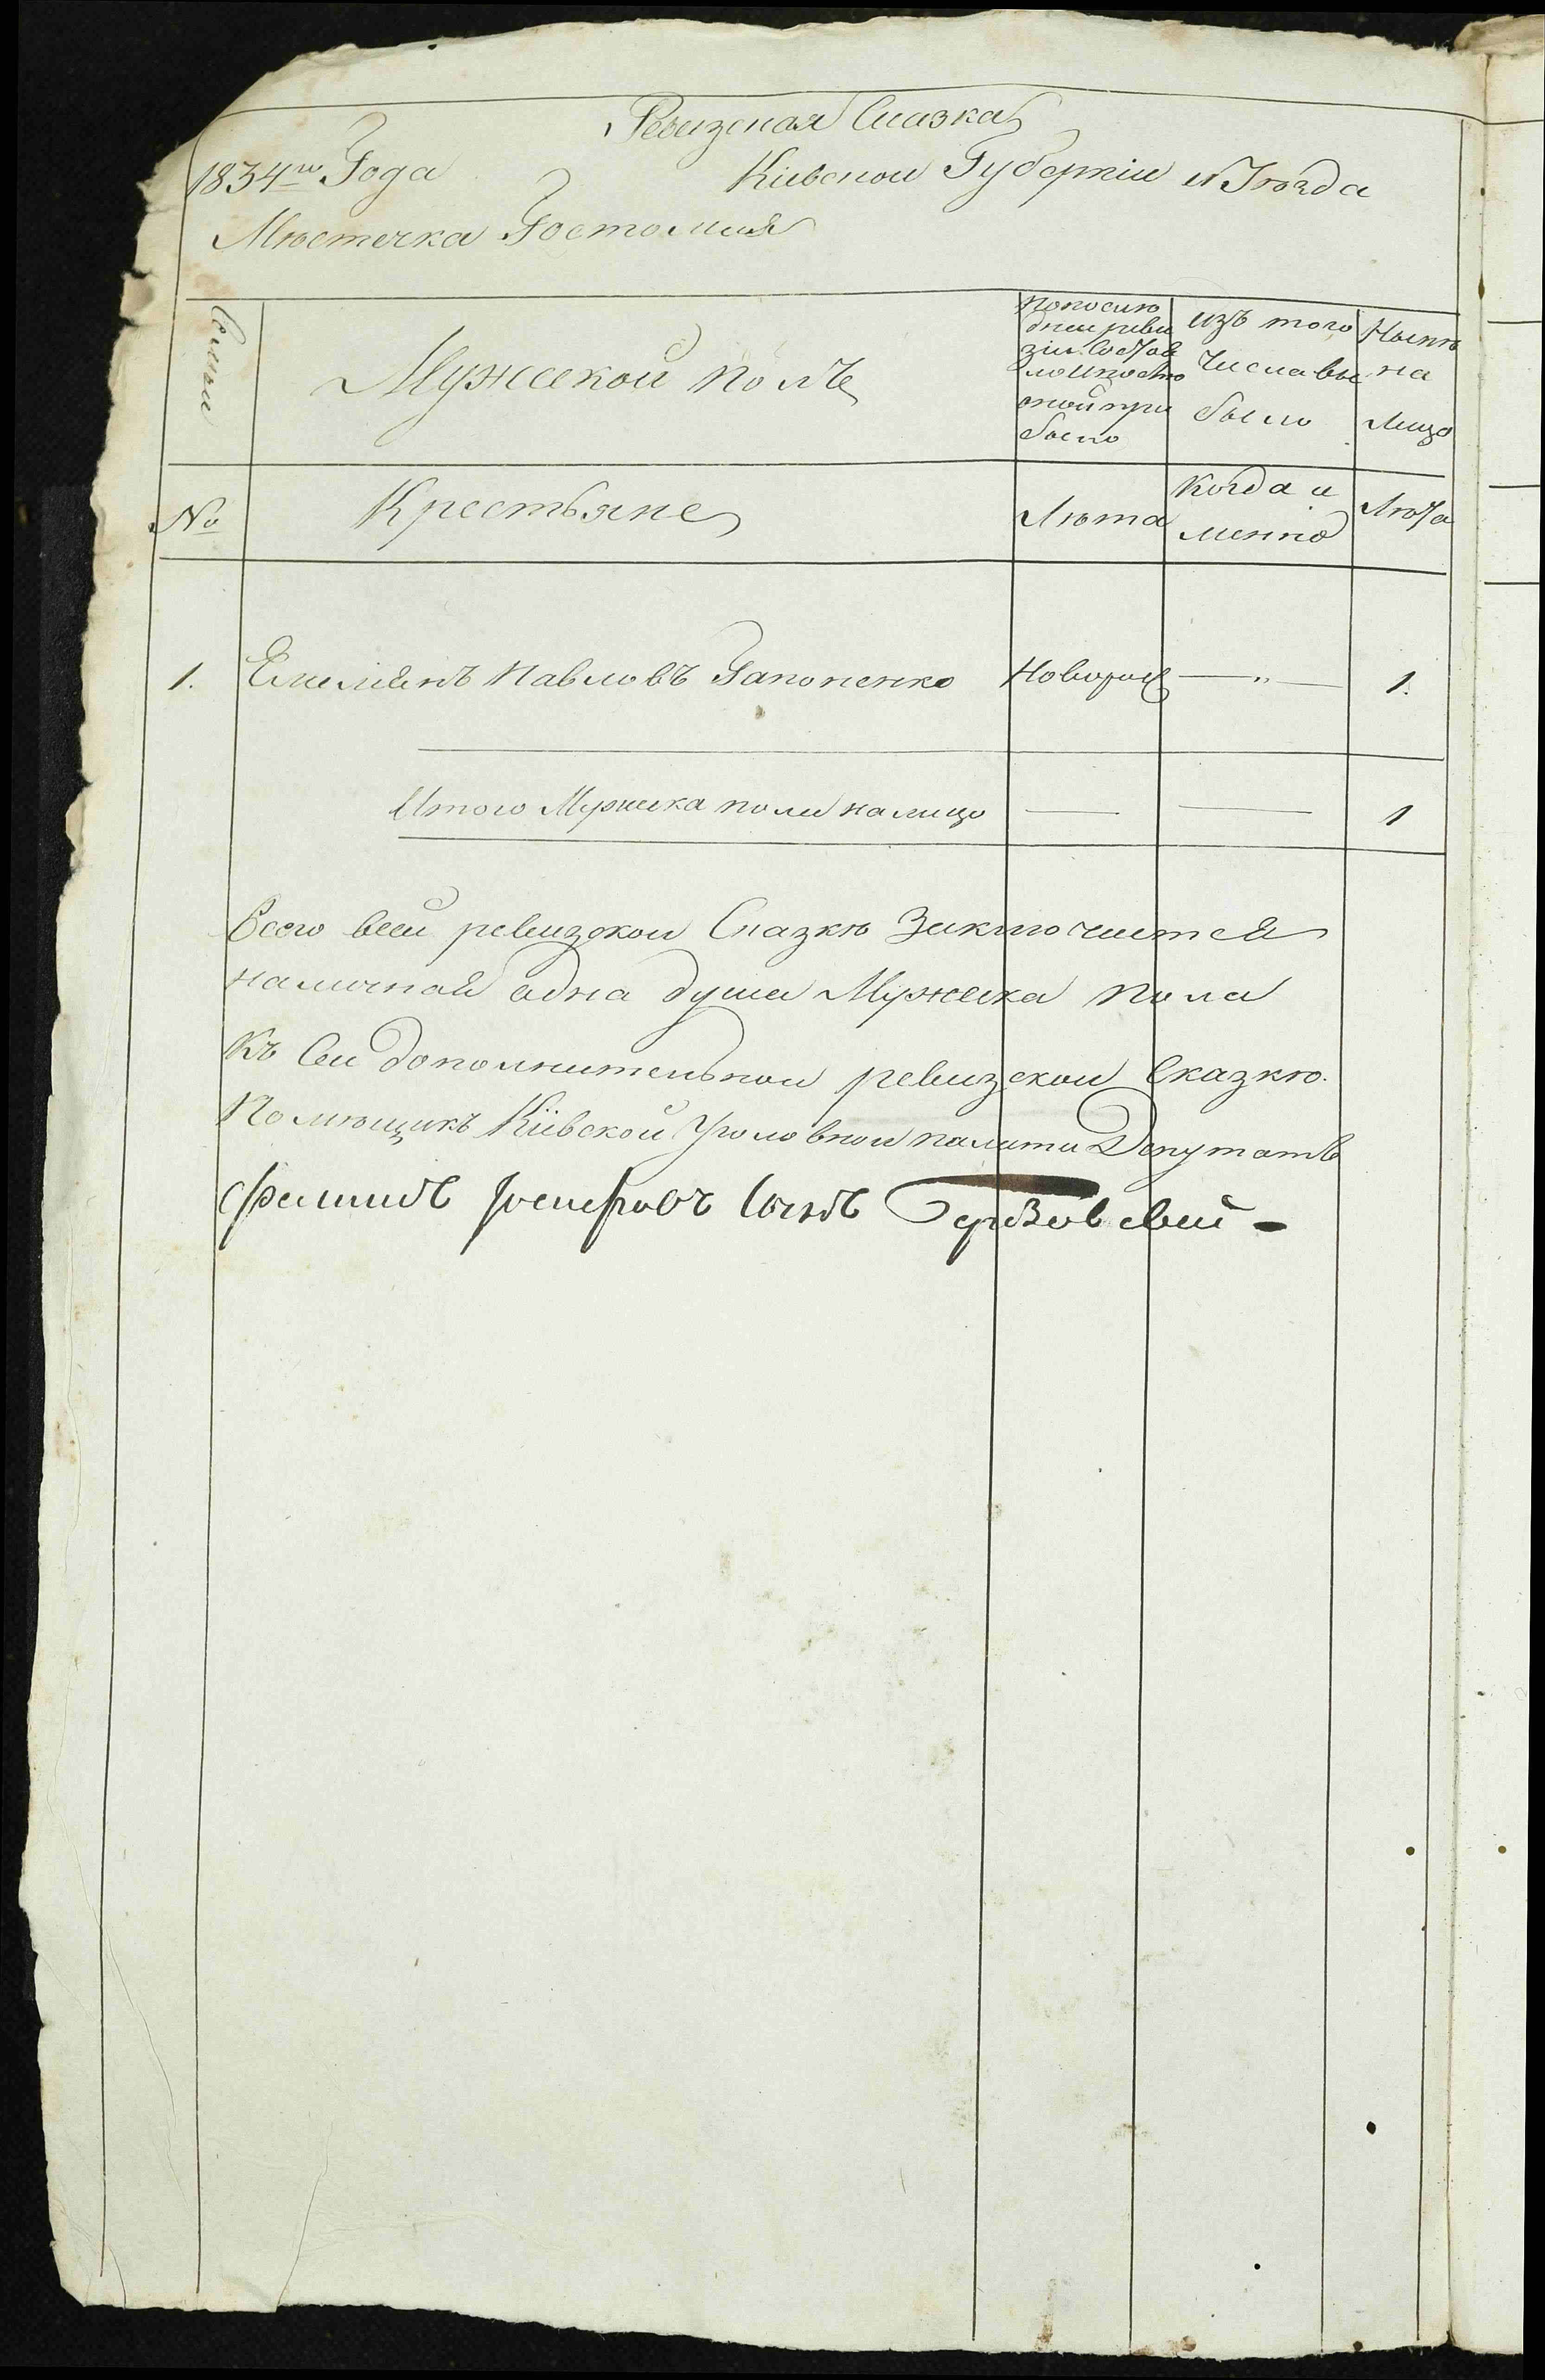 Ревизская Сказка
1834го Года Кіевской Губерніи и Уѣзда
Мѣстечка Гостомля
Семьи
Мужеской полъ
По послѣ
дней реви
зіи состоя
ло и после
оной при
было
Изъ того
числа вы
было
Нынѣ
на
лицо
№
Крестьяне
Лѣта
Когда и
менно
Лѣта
1. Емельянъ Павловъ Гапоненко Новорож — „ — 1.
Итого Мужеска пола налицо — — 1
Всего всей ревизской Сказкѣ Заключится
наличная одна душа Мужеска пола
Къ Сей дополнительной ревизской Сказкѣ.
Помѣщикъ Кіевской Уголовной палаты Депутатъ
Филипъ сынъ